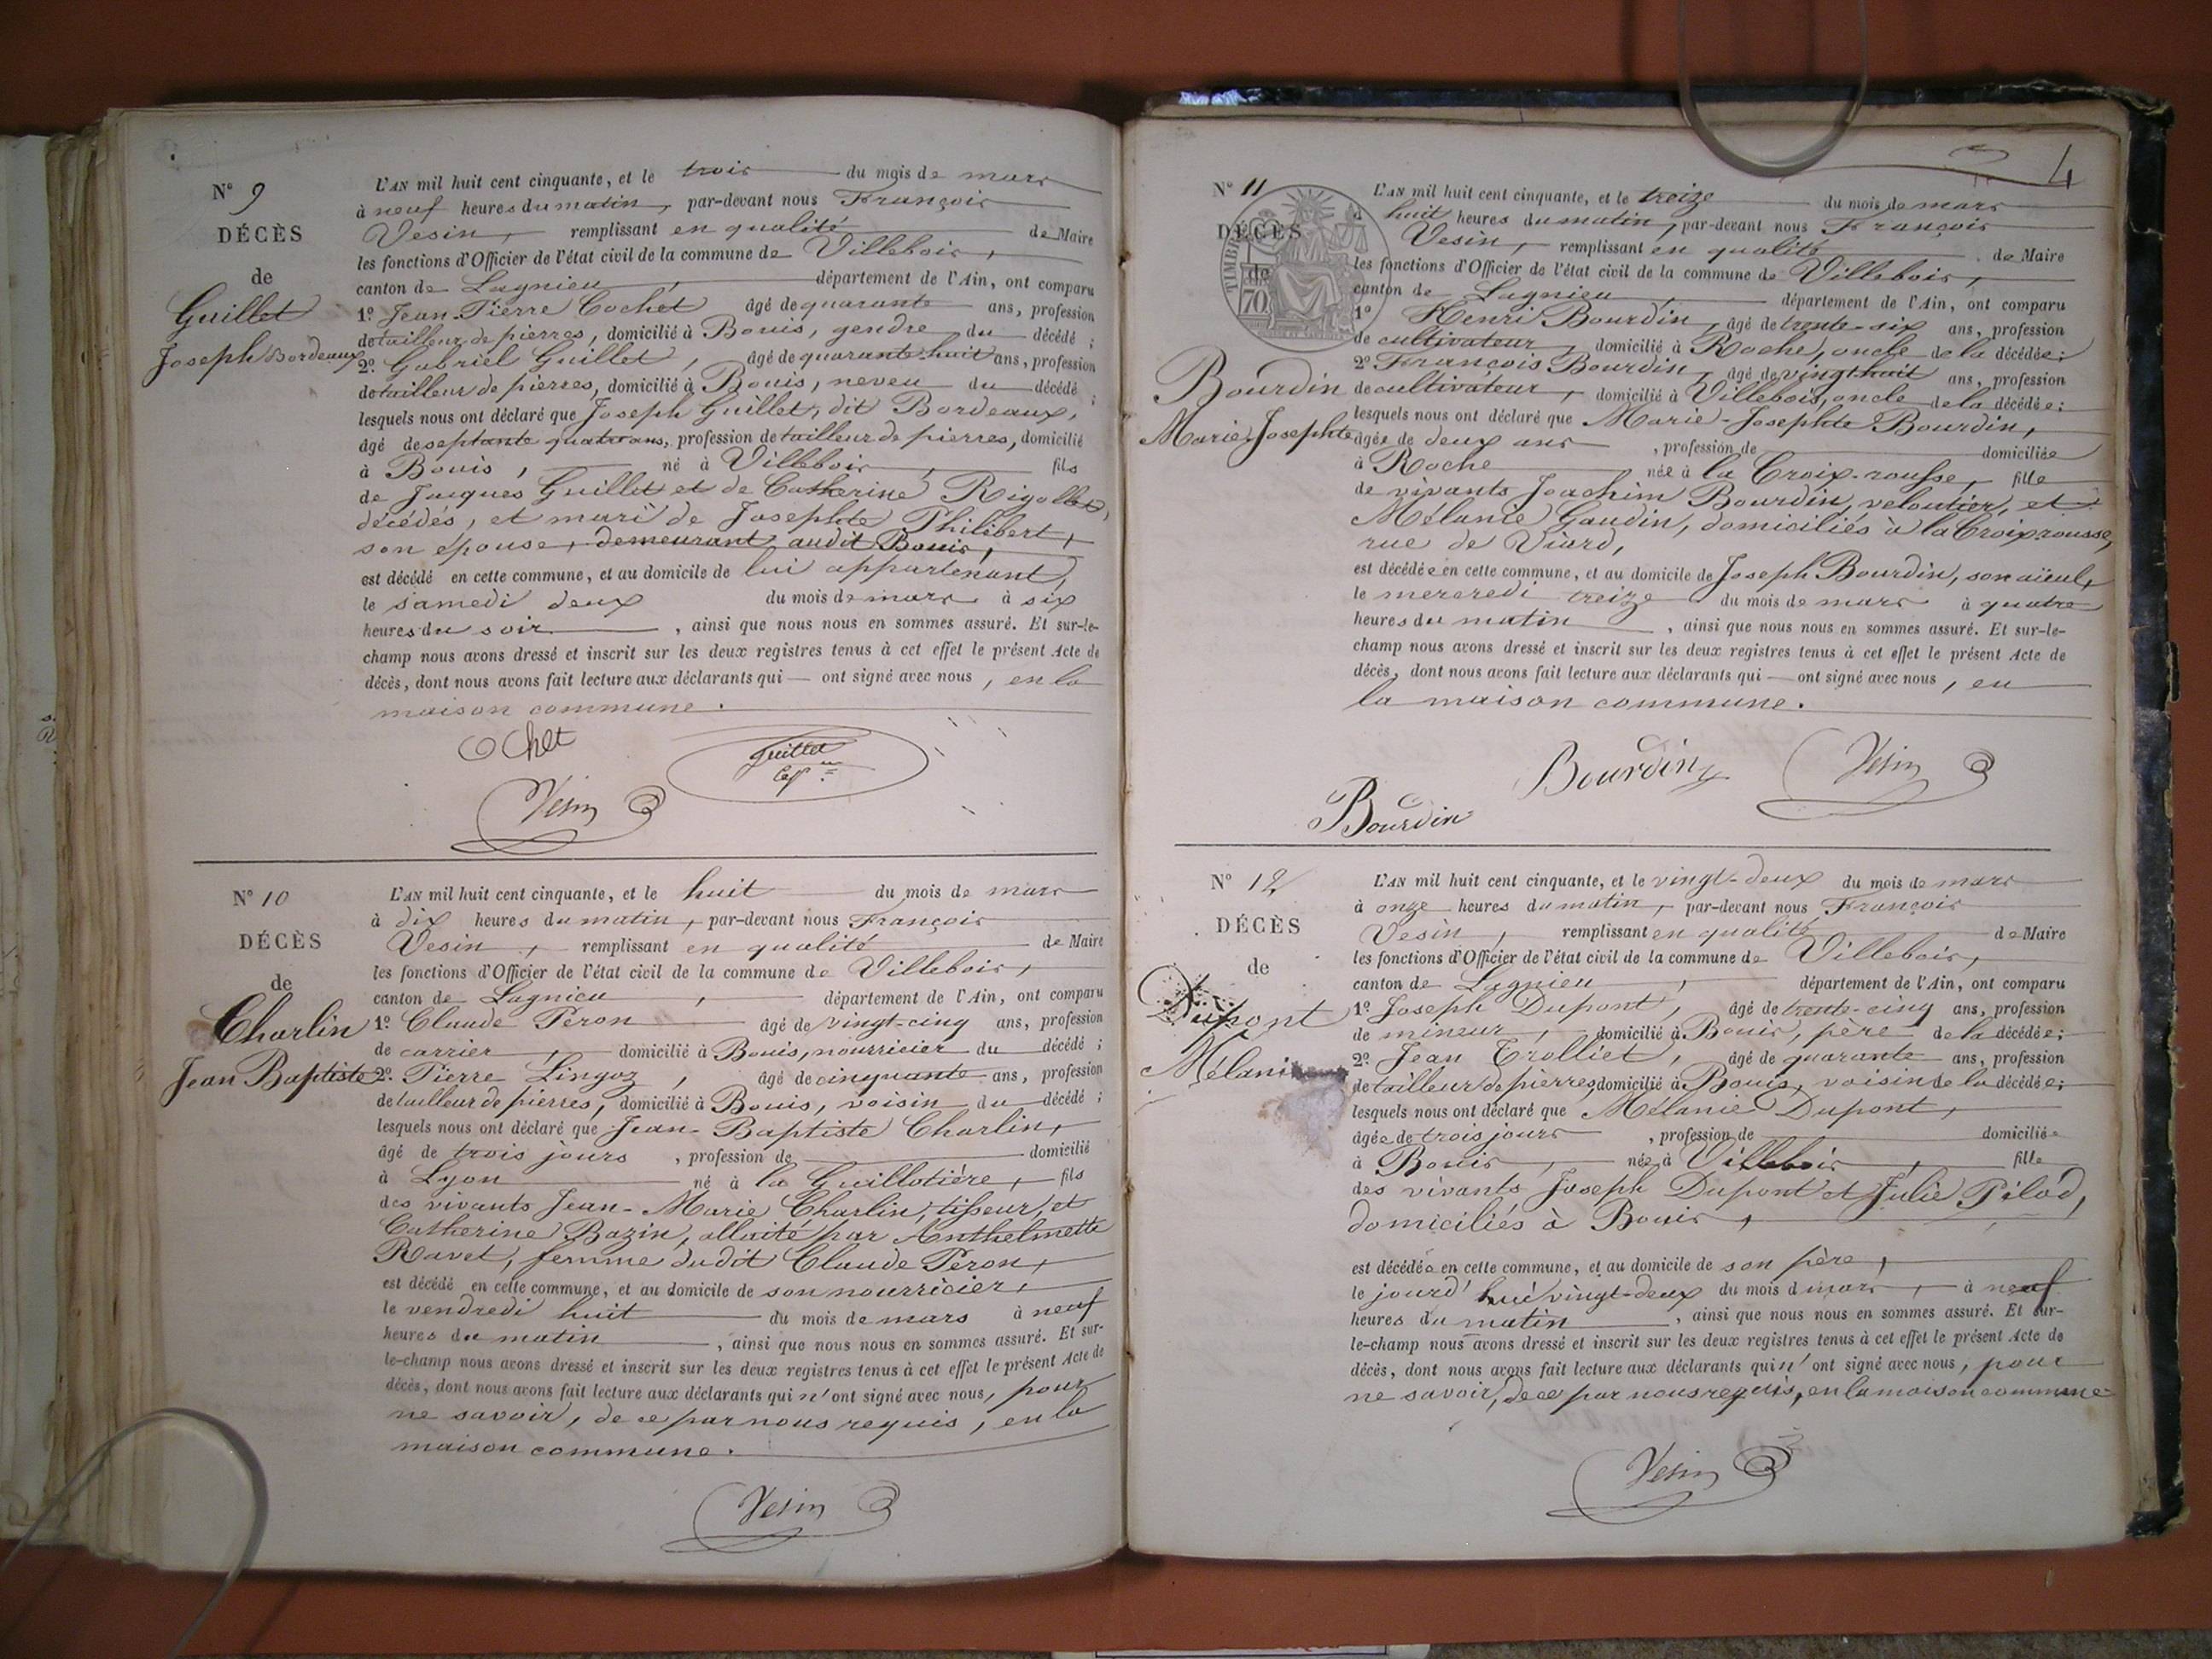 N° 9
DÉCÈS
de
Guillet
Joseph Bordeaux
L'AN mil huit cent cinquante, et le trois du mois de mars
à neuf heures du matin, par-devant nous François
Vesin, remplissant en qualité de Maire
les fonctions d'Officier de l'état civil de la commune de Villebois,
canton de Lagnieu, département de l'Ain, ont comparu
1° Jean-Pierre Cochet âgé de quarante ans, profession
de tailleur de pierres, domicilié à Bouis, gendre du décédé;
2° Gabriel Guillet, âgé de quarante-huit ans, profession
de tailleur de pierres, domicilié à Bouis, neveu du décédé;
lesquels nous ont déclaré que Joseph Guillet, dit Bordeaux,
âgé de septante quatre ans, profession de tailleur de pierres, domicilié
à Bouis, né à Villebois, fils
de Jacques Guillet et de Catherine Rigollet,
décédés, et mari de Josephte Philibert,
son épouse, demeurant audit Bouis,
est décédé en cette commune, et au domicile de lui appartenant,
le samedi deux du mois de mars à six
heures du soir, ainsi que nous nous en sommes assuré. Et sur-le-
champ nous avons dressé et inscrit sur les deux registres tenus à cet effet le présent Acte de
décès, dont nous avons fait lecture aux déclarants qui ont signé avec nous, en la
maison commune.
Cochet
Guillet
Vesin
N° 10
DÉCÈS
de
Charlin
Jean Baptiste
L'AN mil huit cent cinquante, et le huit du mois de mars
à dix heures du matin, par-devant nous François
Vesin, remplissant en qualité de Maire
les fonctions d'Officier de l'état civil de la commune de Villebois,
canton de Lagnieu, département de l'Ain, ont comparu
1° Claude Peron âgé de vingt-cinq ans, profession
de carrier, domicilié à Bouis, nourricier du décédé;
2° Pierre Lingoz, âgé de cinquante ans, profession
de tailleur de pierres, domicilié à Bouis, voisin du décédé;
lesquels nous ont déclaré que Jean-Baptiste Charlin,
âgé de trois jours, profession de domicilié
à Lyon né à la Guillotière, fils
des vivants Jean-Marie Charlin, tisseur, et
Catherine Bazin, allaité par Anthelmette
Ravet, femme dudit Claude Peron,
est décédé en cette commune, et au domicile de son nourricier,
le vendredi huit du mois de mars à neuf
heures du matin, ainsi que nous nous en sommes assuré. Et sur-
le-champ nous avons dressé et inscrit sur les deux registres tenus à cet effet le présent Acte de
décès, dont nous avons fait lecture aux déclarants qui n'ont signé avec nous, pour
ne savoir, de ce par nous requis, en la
maison commune.
Vesin
4
N° 11
DÉCÈS
de
TIMBRE
70
Bourdin
Marie-Josephte
L'AN mil huit cent cinquante, et le treize du mois de mars
à huit heures du matin, par-devant nous François
Vesin, remplissant en qualité de Maire
les fonctions d'Officier de l'état civil de la commune de Villebois,
canton de Lagnieu, département de l'Ain, ont comparu
1° Henri Bourdin, âgé de trente-six ans, profession
de cultivateur, domicilié à Roche, oncle de la décédée;
2° François Bourdin, âgé de vingt-huit ans, profession
de cultivateur, domicilié à Villebois, oncle de la décédée;
lesquels nous ont déclaré que Marie-Josephte Bourdin,
âgée de deux ans, profession de domiciliée
à Roche née à la Croix-rousse, fille
de vivants Joachim Bourdin, veloutier, et
Mélanie Gaudin, domiciliés à la Croix-rousse,
rue de Viard,
est décédée en cette commune, et au domicile de Joseph Bourdin, son aïeul,
le mercredi treize du mois de mars à quatre
heures du matin, ainsi que nous nous en sommes assuré. Et sur-le-
champ nous avons dressé et inscrit sur les deux registres tenus à cet effet le présent Acte de
décès, dont nous avons fait lecture aux déclarants qui ont signé avec nous, en
la maison commune.
Bourdin
Bourdin
Vesin
N° 12
DÉCÈS
de
Dupont
Mélanie
L'AN mil huit cent cinquante, et le vingt-deux du mois de mars
à onze heures du matin, par-devant nous François
Vesin, remplissant en qualité de Maire
les fonctions d'Officier de l'état civil de la commune de Villebois,
canton de Lagnieu, département de l'Ain, ont comparu
1° Joseph Dupont, âgé de trente-cinq ans, profession
de mineur, domicilié à Bouis, père de la décédée;
2° Jean Trolliet, âgé de quarante ans, profession
de tailleur de pierres, domicilié à Bouis, voisin de la décédée;
lesquels nous ont déclaré que Mélanie Dupont,
âgée de trois jours, profession de domiciliée
à Bouis, née à Villebois, fille
des vivants Joseph Dupont et Julie Pilod,
domiciliés à Bouis,
est décédée en cette commune, et au domicile de son père,
le jourd'hui vingt-deux du mois d mars, à neuf
heures du matin, ainsi que nous nous en sommes assuré. Et sur-
le-champ nous avons dressé et inscrit sur les deux registres tenus à cet effet le présent Acte de
décès, dont nous avons fait lecture aux déclarants qui n'ont signé avec nous, pour
ne savoir, de ce par nous requis, en la maison commune.
Vesin